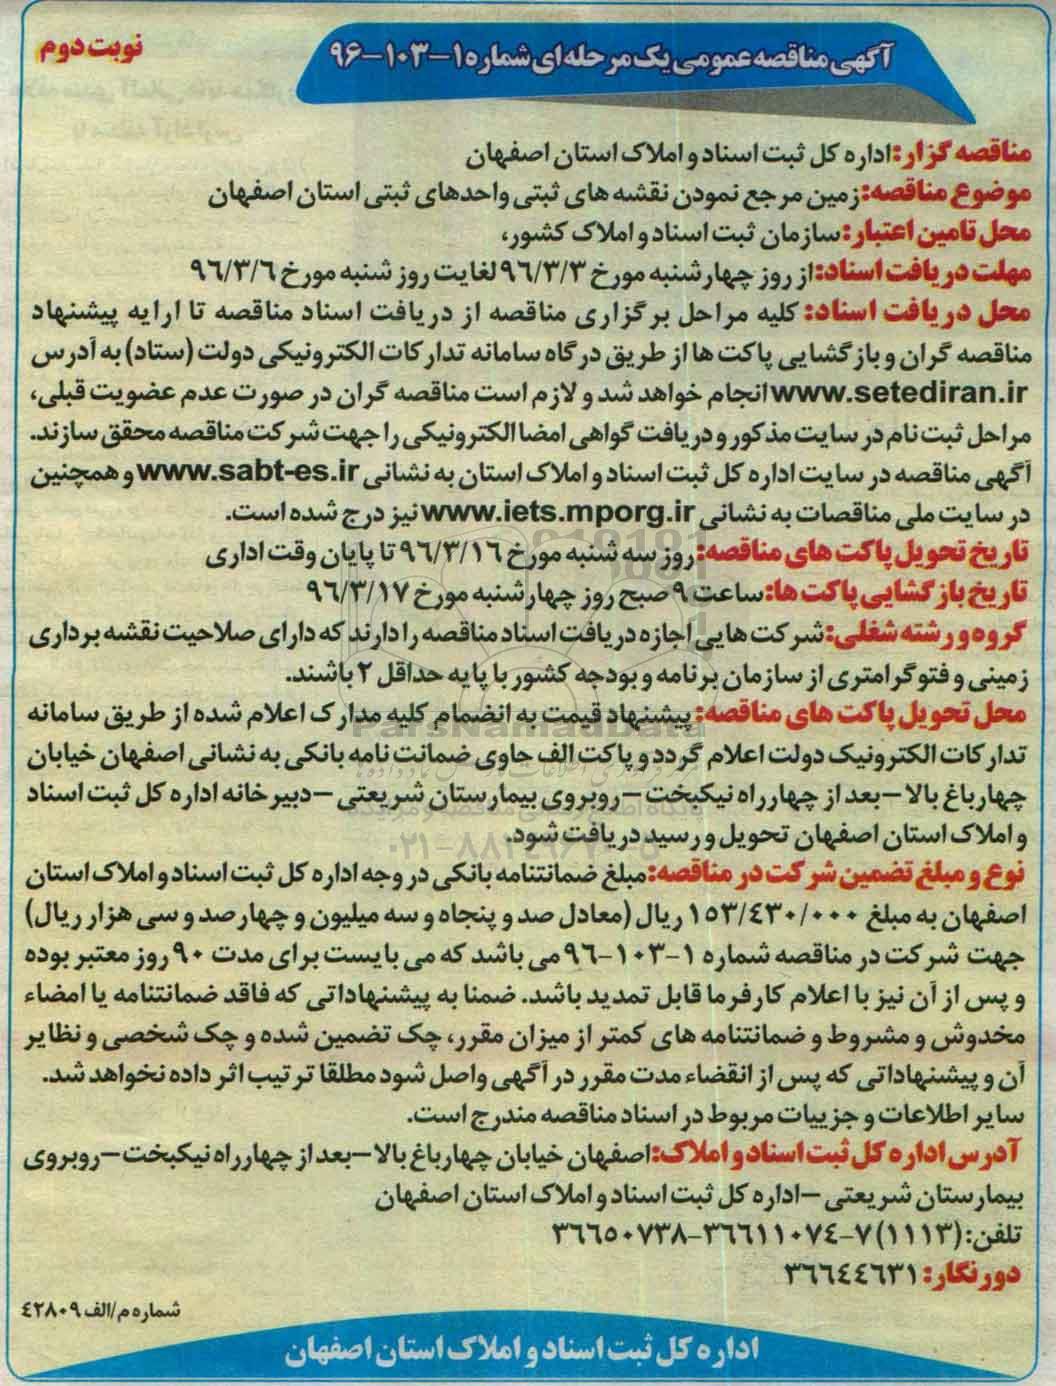 آگهی مناقصه عمومی یک مرحله ای شماره ۱-۱۰۳-۹۶
نوبت دوم
مناقصه گزار: اداره کل ثبت اسناد و املاک استان اصفهان
موضوع مناقصه: زمین مرجع نمودن نقشه های ثبتی واحدهای ثبتی استان اصفهان
محل تامین اعتبار: سازمان ثبت اسناد و املاک کشور،
مهلت دریافت اسناد: از روز چهارشنبه مورخ ۹۶/۳/۳ لغایت روز شنبه مورخ ۹۶/۳/۶
محل دریافت اسناد: کلیه مراحل برگزاری مناقصه از دریافت اسناد مناقصه تا ارایه پیشنهاد
مناقصه گران و بازگشایی پاکت ها از طریق درگاه سامانه تدارکات الکترونیکی دولت (ستاد) به آدرس
www.setediran.ir انجام خواهد شد و لازم است مناقصه گران در صورت عدم عضویت قبلی،
مراحل ثبت نام در سایت مذکور و دریافت گواهی امضا الکترونیکی را جهت شرکت مناقصه محقق سازند.
آگهی مناقصه در سایت اداره کل ثبت اسناد و املاک استان به نشانی www.sabt-es.ir و همچنین
در سایت ملی مناقصات به نشانی www.iets.mporg.ir نیز درج شده است.
تاریخ تحویل پاکت های مناقصه: روز سه شنبه مورخ ۹۶/۳/۱۶ تا پایان وقت اداری
تاریخ بازگشایی پاکت ها: ساعت ۹ صبح روز چهارشنبه مورخ ۹۶/۳/۱۷
گروه و رشته شغلی: شرکت هایی اجازه دریافت اسناد مناقصه را دارند که دارای صلاحیت نقشه برداری
زمینی و فتوگرامتری از سازمان برنامه و بودجه کشور با پایه حداقل ۲ باشند.
محل تحویل پاکت های مناقصه: پیشنهاد قیمت به انضمام کلیه مدارک اعلام شده از طریق سامانه
تدارکات الکترونیک دولت اعلام گردد و پاکت الف حاوی ضمانت نامه بانکی به نشانی اصفهان خیابان
چهارباغ بالا – بعد از چهارراه نیکبخت – روبروی بیمارستان شریعتی – دبیرخانه اداره کل ثبت اسناد
و املاک استان اصفهان تحویل و رسید دریافت شود.
نوع و مبلغ تضمین شرکت در مناقصه: مبلغ ضمانتنامه بانکی در وجه اداره کل ثبت اسناد و املاک استان
اصفهان به مبلغ ۱۵۳/۴۳۰/۰۰۰ ریال (معادل صد و پنجاه و سه میلیون و چهارصد و سی هزار ریال)
جهت شرکت در مناقصه شماره ۱-۱۰۳-۹۶ می باشد که می بایست برای مدت ۹۰ روز معتبر بوده
و پس از آن نیز با اعلام کارفرما قابل تمدید باشد. ضمنا به پیشنهاداتی که فاقد ضمانتنامه یا امضاء
مخدوش و مشروط و ضمانتنامه های کمتر از میزان مقرر، چک تضمین شده و چک شخصی و نظایر
آن و پیشنهاداتی که پس از انقضاء مدت مقرر در آگهی واصل شود مطلقا ترتیب اثر داده نخواهد شد.
سایر اطلاعات و جزییات مربوط در اسناد مناقصه مندرج است.
آدرس اداره کل ثبت اسناد و املاک: اصفهان خیابان چهارباغ بالا – بعد از چهارراه نیکبخت – روبروی
بیمارستان شریعتی – اداره کل ثبت اسناد و املاک استان اصفهان
تلفن: (۱۱۱۳) ۷-۳۶۶۱۱۰۷۴-۳۶۶۵۰۷۳۸
دورنگار: ۳۶۶۴۴۶۳۱
شماره م/الف ۴۲۸۰۹
اداره کل ثبت اسناد و املاک استان اصفهان
ParsNamadData